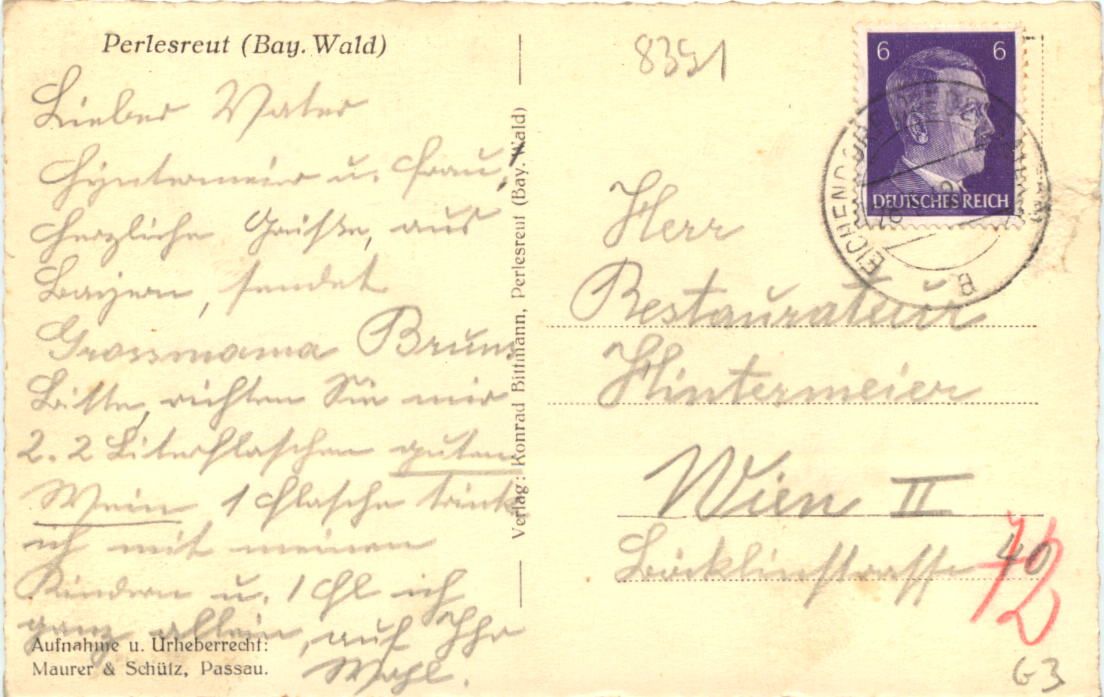 Perlesreut (Bay. Wald)
Lieber Vater
Hyntermeier u. Frau,
herzliche Grüße, aus
Bayern, sendet
Grossmama Brum
Bitte, richten Sie mir
2. 2 Literflaschen guten
Wein 1 Flasche trink
ich mit meinen
Kindern u. 1 Fl ich
ganz allein, auf Ihr
Wohl.
Aufnahme u. Urheberrecht:
Maurer & Schütz, Passau.
Verlag: Konrad Bittmann, Perlesreut (Bay. Wald)
8351
6 6
DEUTSCHES REICH
EICHENDORF
B
Herr
Restaurateur
Hintermeier
Wien II
Böcklinstrasse 40
12
G3